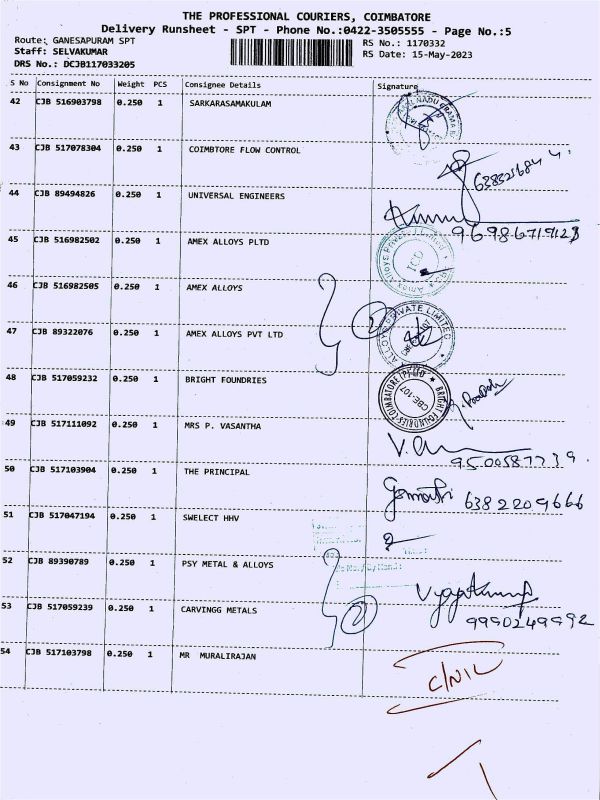 THE PROFESSIONAL COURIERS, COIMBATORE
Delivery Runsheet - SPT - Phone No.:0422-3505555 - Page No.:5
Route: GANESAPURAM SPT
RS No.: 1170332
Staff: SELVAKUMAR
RS Date: 15-May-2023
DRS No.: DCJB117033205
S No Consignment No Weight PCS Consignee Details Signature
42 CJB 516903798 0.250 1 SARKARASAMAKULAM
43 CJB 517078304 0.250 1 COIMBTORE FLOW CONTROL
44 CJB 89494826 0.250 1 UNIVERSAL ENGINEERS
45 CJB 516982502 0.250 1 AMEX ALLOYS PLTD
ICD
46 CJB 516982505 0.250 1 AMEX ALLOYS
2
47 CJB 89322076 0.250 1 AMEX ALLOYS PVT LTD
48 CJB 517059232 0.250 1 BRIGHT FOUNDRIES
BRIGHT FOUNDRIES COIMBATORE (P) LTD
CBE-107
49 CJB 517111092 0.250 1 MRS P. VASANTHA
50 CJB 517103904 0.250 1 THE PRINCIPAL
6382209666
51 CJB 517047194 0.250 1 SWELECT HHV
52 CJB 89390789 0.250 1 PSY METAL & ALLOYS
53 CJB 517059239 0.250 1 CARVINGG METALS
2
9990249992
54 CJB 517103798 0.250 1 MR MURALIRAJAN